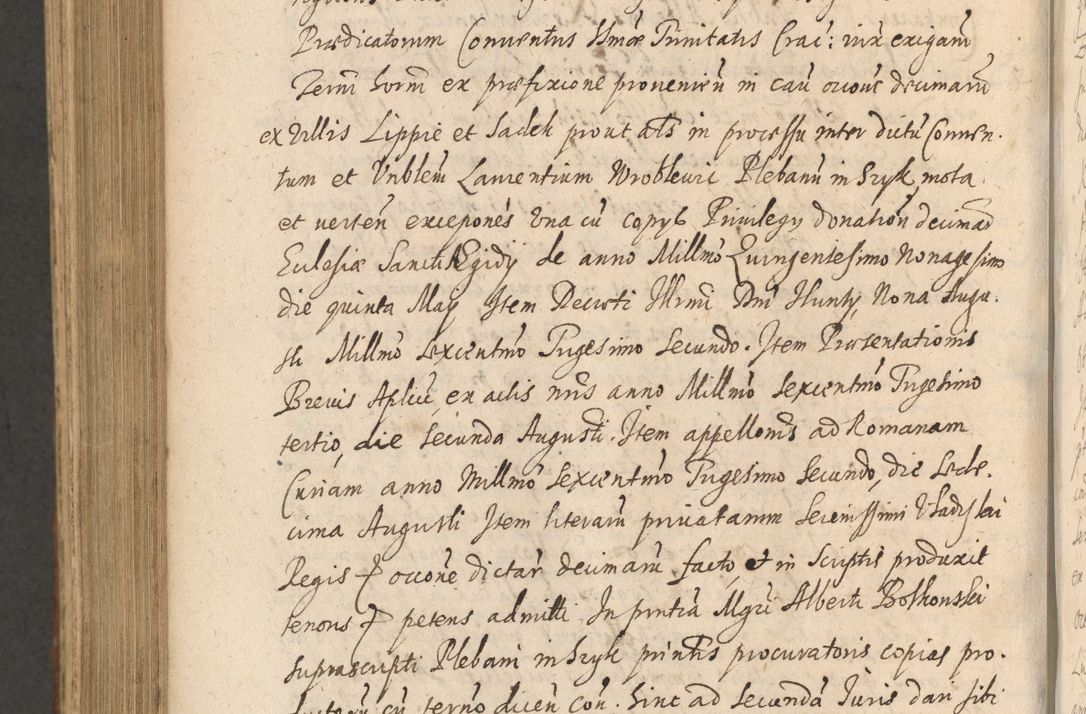 Prædicatorum Conuentus Smæ Trinitatis Crac: iux exigam
Term̃ horm̃ ex præfixione prouenieñ in cau occone decimarũ
ex Villis Lippie et Sadek prout als in processu inter dictũ Conuen-
tum et Vnblem Laurentium Wroblewic Plebanũ in Szyk mota
et verteñ exceponẽs Vna cũ copys Priuilegy donatioñ decimaɤ
Eclesiæ Sancti Ægidÿ de anno Millmo Quingentesimo Nonagesimo
die quinta May Item Decreti Illrmi Dni Nunty, Nona Augu-
sti Millmo Sexcentmo Trigesimo Secundo. Item Præsentationis
Breuis Aplici, ex actis nris anno Millmo Sexcentmo Trigesimo
tertio, die Secunda Augusti. Item appellonis ad Romanam
Curiam anno Millmo Sexcentmo Trigesimo Secundo, die Sede-
cima Augusti Item literarũ priuatarum Serenissimi Vladislai
Regis occone dictar decimarũ facto, et in Scriptis produxit
tenoris petens admitti In pntia Mgri Alberti Bolkonski
suprascripti Plebani in Szyk printis procuratoris copias pro-
ductorũ cũ termo diceñ Con. Sinc ad Secundã Iuris dari sibi